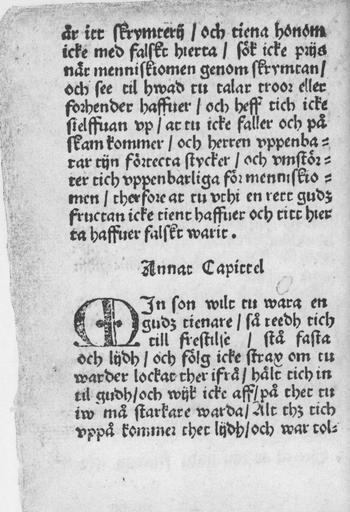 är itt skrymterij / och tiena honom
icke med falskt hierta / sök icke prijs
när menniskiomen genom skrymtan /
och see til hwad tu talar troor eller
forhender haffuer / och heff tich icke
sielffuan vp / at tu icke faller och på
skam kommer / och herren vppenba=
rar tijn förtecta stycker / och vmstör=
ter tich vppenbarliga för menniskio=
men / therfore at tu vthi en rett gudz
fructan icke tient haffuer och titt hier
ta haffuer falskt warit .
Annat Capittel
MIn son wilt tu wara en
gudz tienare / så reedh tich
till frestilse / stå fasta
och lijdh / och fölg icke strax om tu
warder lockat ther ifrå / hålt tich in
til gudh / och wijk icke aff / på thet tu
iw må starkare warda / Alt thz tich
vppå kommer thet lijdh / och war tol=